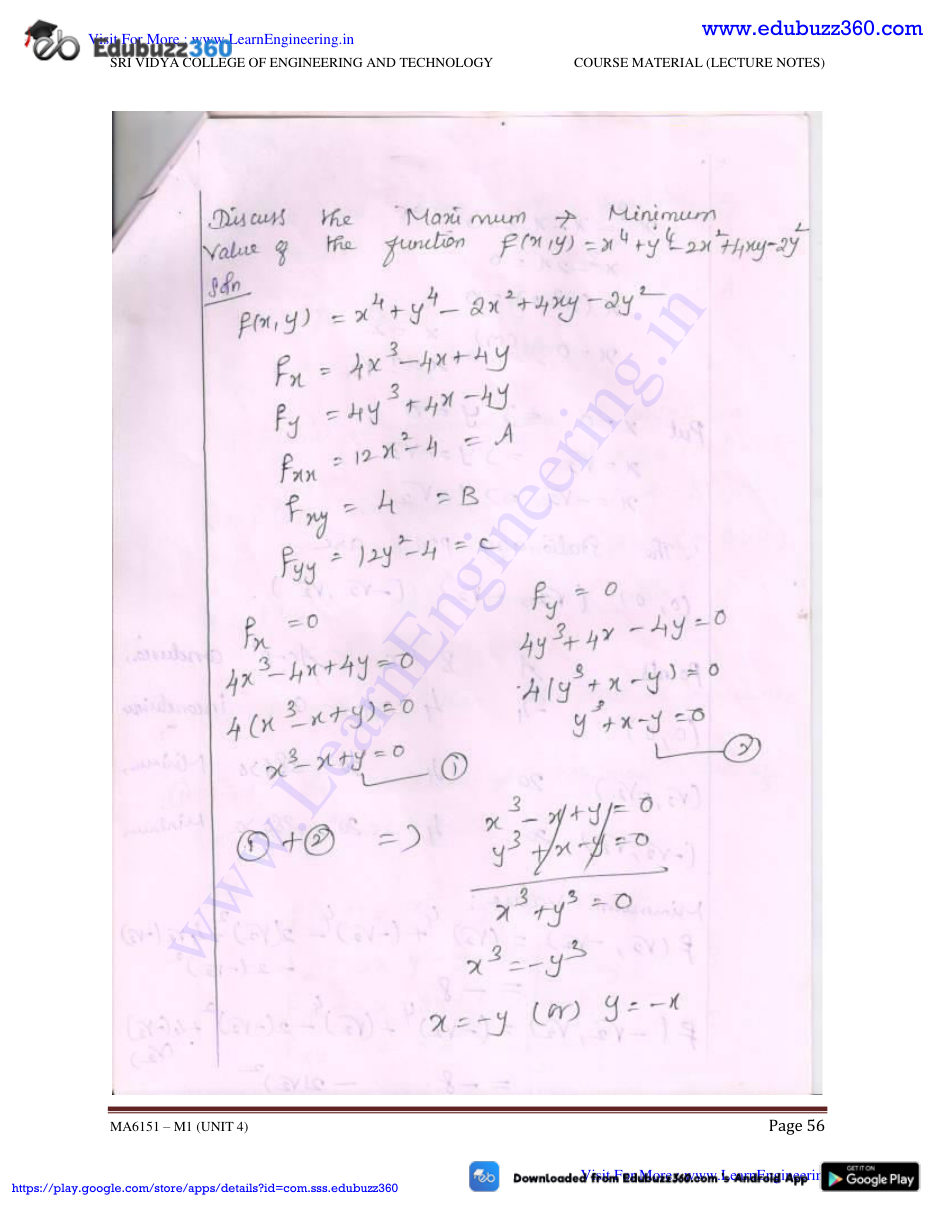 www.edubuzz360.com
Visit For More : www.LearnEngineering.in
Edubuzz360
SRI VIDYA COLLEGE OF ENGINEERING AND TECHNOLOGY COURSE MATERIAL (LECTURE NOTES)
Discuss the Maximum → Minimum
Value of the function f(x,y) = x⁴+y⁴-2x²+4xy-2y²
Soln
f(x,y) = x⁴+y⁴-2x²+4xy-2y²
fx = 4x³-4x+4y
fy = 4y³+4x-4y
fxx = 12x²-4 = A
fxy = 4 = B
fyy = 12y²-4 = C
fx = 0 fy = 0
4x³-4x+4y=0 4y³+4x-4y=0
4(x³-x+y)=0 4(y³+x-y)=0
x³-x+y=0 ① y³+x-y=0 ②
①+② => x³-x+y=0
y³+x-y=0
x³+y³=0
x³=-y³
x=-y (or) y=-x
www.LearnEngineering.in
MA6151 – M1 (UNIT 4) Page 56
https://play.google.com/store/apps/details?id=com.sss.edubuzz360
Downloaded from EduBuzz360.com 's Android App
Visit For More : www.LearnEngineerin
GET IT ON
Google Play